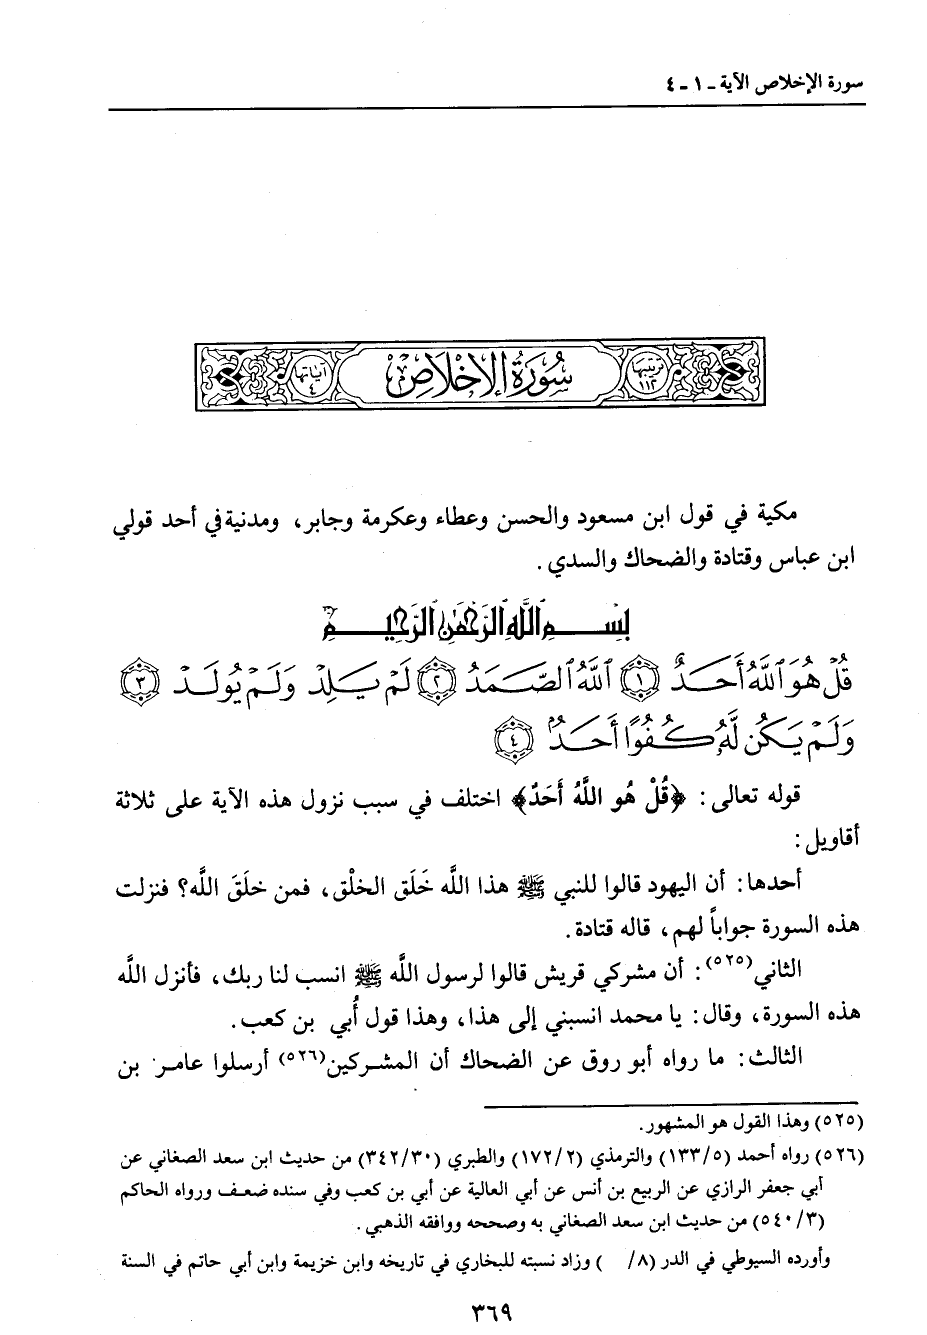 سورة الإخلاص الآية ـ ١ ـ ٤
ترتيبها ١١٢ سُورَةُ الإِخْلَاصِ آياتها ٤
مكية في قول ابن مسعود والحسن وعطاء وعكرمة وجابر، ومدنية في أحد قولي
ابن عباس وقتادة والضحاك والسدي.
بِسْمِ ٱللَّهِ ٱلرَّحْمَٰنِ ٱلرَّحِيمِ
قُلْ هُوَ ٱللَّهُ أَحَدٌ ١ ٱللَّهُ ٱلصَّمَدُ ٢ لَمْ يَلِدْ وَلَمْ يُولَدْ ٣
وَلَمْ يَكُن لَّهُۥ كُفُوًا أَحَدٌۢ ٤
قوله تعالى: ﴿قُلْ هُو اللَّهُ أَحَدٌ﴾ اختلف في سبب نزول هذه الآية على ثلاثة
أقاويل:
أحدها: أن اليهود قالوا للنبي ﷺ هذا اللَّه خَلَق الخلْق، فمن خلَقَ اللَّه؟ فنزلت
هذه السورة جواباً لهم، قاله قتادة.
الثاني(٥٢٥): أن مشركي قريش قالوا لرسول اللَّه ﷺ انسب لنا ربك، فأنزل اللَّه
هذه السورة، وقال: يا محمد انسبني إلى هذا، وهذا قول أُبي بن كعب.
الثالث: ما رواه أبو روق عن الضحاك أن المشركين(٥٢٦) أرسلوا عامر بن
(٥٢٥) وهذا القول هو المشهور.
(٥٢٦) رواه أحمد (١٣٣/٥) والترمذي (١٧٢/٢) والطبري (٣٤٢/٣٠) من حديث ابن سعد الصغاني عن
أبي جعفر الرازي عن الربيع بن أنس عن أبي العالية عن أبي بن كعب وفي سنده ضعف ورواه الحاكم
(٥٤٠/٣) من حديث ابن سعد الصغاني به وصححه ووافقه الذهبي.
وأورده السيوطي في الدر (٨/ ) وزاد نسبته للبخاري في تاريخه وابن خزيمة وابن أبي حاتم في السنة
٣٦٩